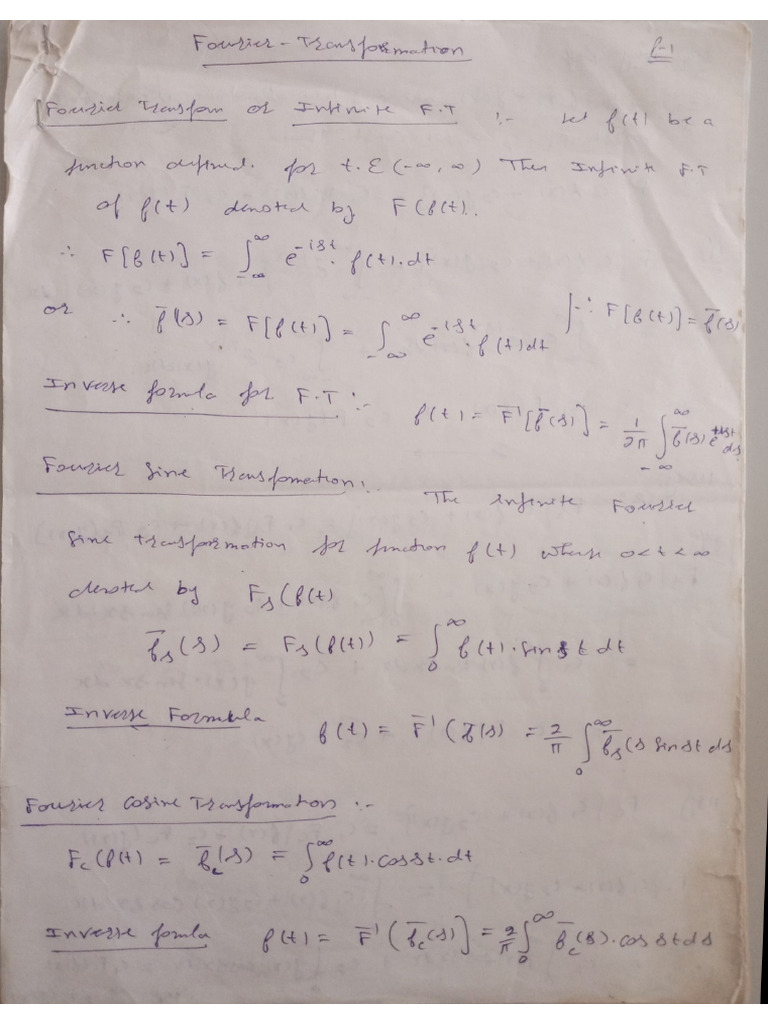 Fourier-Transformation P-1
Fourier Transform or Infinite F.T :- Let f(t) be a
function defined. for t. ∈ (-∞, ∞) Then Infinite F.T
of f(t) denoted by F(f(t).
∴ F[f(t)] = ∫_{-∞}^{∞} e^{-ist}. f(t).dt
or ∴ f̄(s) = F[f(t)] = ∫_{-∞}^{∞} e^{-ist}. f(t)dt |∵ F[f(t)] = f̄(s)
Inverse formula for F.T :- f(t) = F̄¹[f̄(s)] = 1/2π ∫_{-∞}^{∞} f̄(s) e^{+ist} ds
Fourier Sine Transformation:- The infinite Fourier
Sine transformation for function f(t) where 0<t<∞
denoted by F_s(f(t)
f̄_s(s) = F_s(f(t)) = ∫_0^∞ f(t).sin st dt
Inverse Formula f(t) = F̄¹(f̄(s) = 2/π ∫_0^∞ f̄_s(s sin st ds
Fourier Cosine Transformation :-
F_c(f(t) = f̄_c(s) = ∫_0^∞ f(t).cos st.dt
Inverse fomula f(t) = F̄¹(f̄_c(s)] = 2/π ∫_0^∞ f̄_c(s).cos st ds